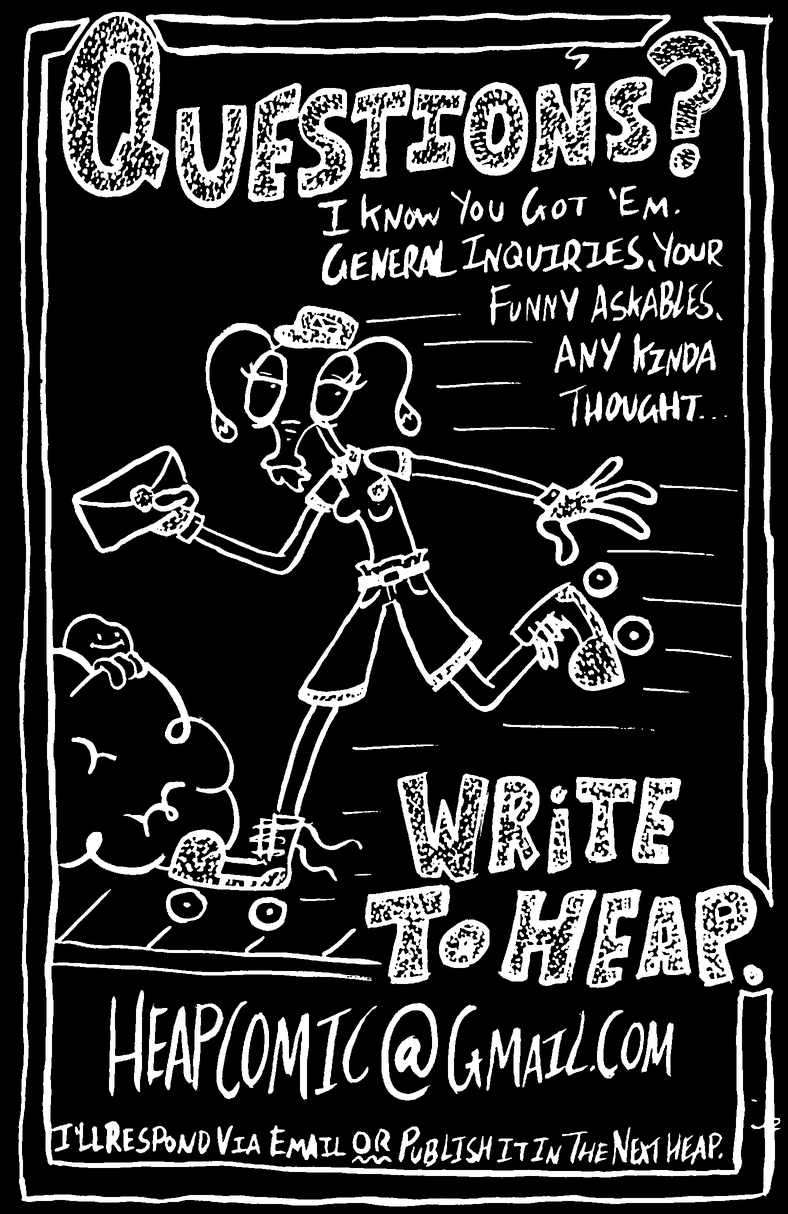 QUESTIONS?
I KNOW YOU GOT 'EM.
GENERAL INQUIRIES, YOUR
FUNNY ASKABLES,
ANY KINDA
THOUGHT...
WRITE
TO HEAP.
HEAPCOMIC@GMAIL.COM
I'LL RESPOND VIA EMAIL OR PUBLISH IT IN THE NEXT HEAP.